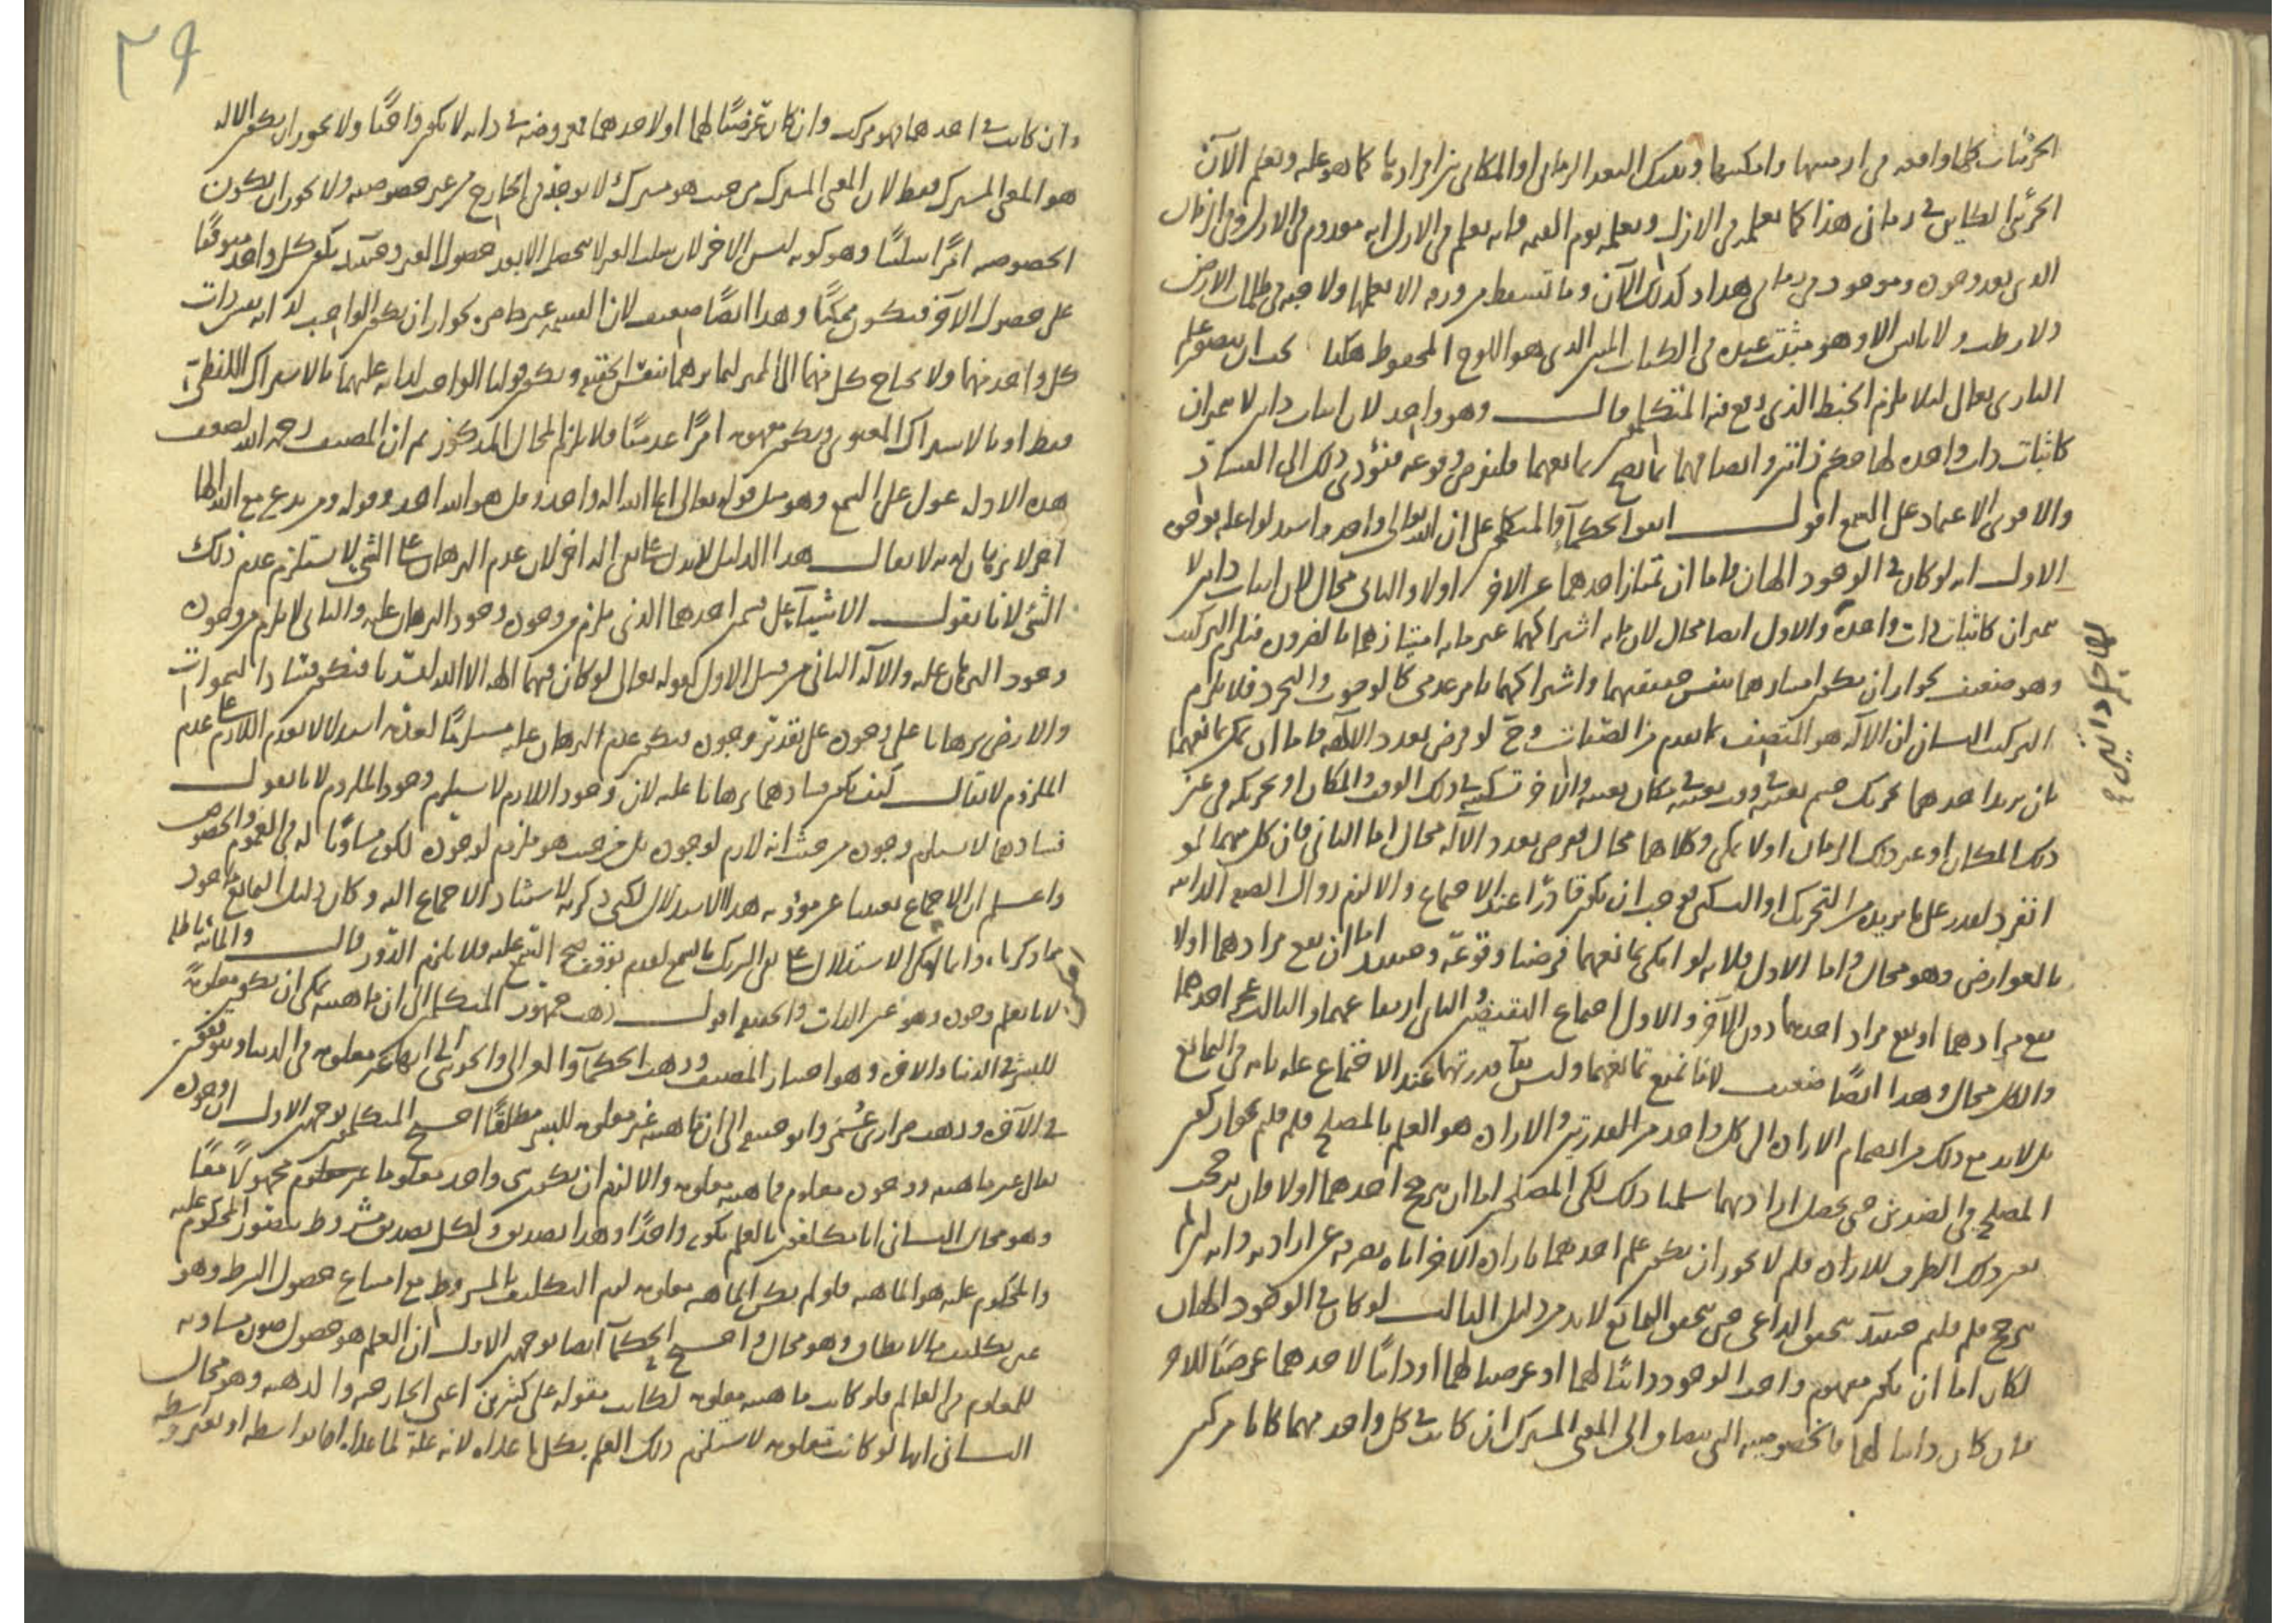 الجزئيات كلها واقعة في ازمنتها وامكنتها وبعدك البعد الزماني او المكاني بين افرادها كما هو عليه ويعلم الآن
الجزئي الكاين في زماني هذا كما يعلمه في الازل ويعلمه يوم القيمة فانه يعلم في الازل انه معدوم في الازل وفي الزمان
الذي بعد وجوده وموجود في زماني هذا وكذلك الآن وما تسقط من ورقة الا يعلمها ولا حبة في ظلمات الارض
ولا رطب ولا يابس الا وهو مثبت عنده في الكتاب المبين الذي هو اللوح المحفوظ هكذا يجب ان يتصور علم
الباري تعالى لئلا يلزم الخبط الذي وقع فيه المتكلمون قال وهو واحد لان اثبات ذاتين لا يتميزان
كاثبات ذات واحدة لها حكم ذاتين وايضا فهما مما يصح تمانعهما فليفرض وقوعه فيؤدي ذلك الى الفساد
والاقوى الاعتماد على السمع اقول اتفق الحكماء والمتكلمون على ان الله تعالى واحد واستدلوا عليه بوجوه
الاول انه لو كان في الوجود الهان فاما ان يمتاز احدهما عن الآخر اولا والثاني محال لان اثبات ذاتين لا
يتميزان كاثبات ذات واحدة والاول ايضا محال لان ما به اشتراكهما غير ما به امتيازهما بالضرورة فيلزم التركيب
وهو ضعيف لجواز ان يكون امتيازهما بنفس حقيقتهما واشتراكهما بامر عدمي كالوجوب والتجرد فلا يلزم
التركيب الثاني ان الاله هو المتصف بما تقدم من الصفات وح لو فرض تعدد الآلهة فاما ان يمكن تمانعهما
بان يريد احدهما تحريك جسم بعينه في وقت بعينه في مكان بعينه والآخر تسكينه في ذلك الوقت والمكان او تحريكه في غير
ذلك المكان او غير ذلك الزمان اولا يمكن وكلاهما محال ففرض تعدد الآلهة محال اما الثاني فان كل منهما لو
انفرد لقدر على ما يريده من التحريك او التسكين فوجب ان يكون قادرا عند الاجتماع والا لزم زوال الصفة الذاتية
بالعوارض وهو محال واما الاول فلانه لو امكن تمانعهما فرضنا وقوعه وحينئذ اما ان يقع مرادهما اولا
يقع مرادهما او يقع مراد احدهما دون الآخر والاول اجتماع النقيضين والثاني ارتفاعهما والثالث عجز احدهما
والكل محال وهذا ايضا ضعيف لانا نمنع تمانعهما وليس بقاء قدرتهما عند الاجتماع علة تامة في التمانع
بل لابد مع ذلك من انضمام الارادة الى كل واحد من القدرتين والارادة هو العلم بالمصلحة فلم قلتم بجواز كون
المصلحة في الضدين حتى يحصل ارادتهما سلمنا ذلك لكن المصلحتين اما ان يترجح احدهما اولا فان ترجحت
تعين ذلك الطرف للارادة فلم لا يجوز ان يكون علم احدهما بارادة الآخر اياه يصرفه عن ارادته وان لم
يترجح فلم قلتم حينئذ يتحقق الداعي حتى يتحقق التمانع لابد من دليل الثالث لو كان في الوجود الهان
لكان اما ان يكون مفهوم واجب الوجود ذاتيا لهما او عرضيا لهما او ذاتيا لاحدهما عرضيا للآخر
فان كان ذاتيا لهما فالخصوصية التي تضاف الى المعنى المشترك ان كانت في كل واحد منهما كانا مركبين
٢٩
وان كانت في احدهما فهو مركب وان كان عرضيا لهما او لاحدهما فمعروضه في ذاته لا يكون واجبا ولا يجوز ان يكون الاله
هو المعنى المشترك فقط لان المعنى المشترك من حيث هو مشترك لا يوجد في الخارج من غير خصوصية ولا يجوز ان يكون
الخصوصية امرا سلبيا وهو كونه ليس الآخر لان سلب الغير لا يتحصل الا بعد حصول الغير وحينئذ يكون كل واحد متوقفا
على حصول الآخر فيكون ممكنا وهذا ايضا ضعيف لان القسمة غير حاصرة لجواز ان يكون الواجب لذاته نفس ذات
كل واحد منهما ولا يحتاج كل منهما الى المميز لتمايزهما بنفس الحقيقة ويكون قولنا الواجب لذاته عليهما بالاشتراك اللفظي
فقط او بالاشتراك المعنوي ويكون مفهومه امرا عدميا فلا يلزم المحال المذكور ثم ان المصنف رحمه الله لضعف
هذه الادلة عول على السمع وهو مثل قوله تعالى انما الله اله واحد وقل هو الله احد وقوله ومن يدع مع الله الها
آخر لا برهان له به لا يقال هذا الدليل لا يدل على نفي اله آخر لان عدم البرهان على الشيء لا يستلزم عدم ذلك
الشيء لانا نقول الاشياء على قسمين احدهما الذي يلزم من وجوده وجود البرهان عليه والثاني لا يلزم من وجوده
وجود البرهان عليه والاله الثاني من قبيل الاول لقوله تعالى لو كان فيهما الهة الا الله لفسدتا فيكون فساد السموات
والارض برهانا على وجوده على تقدير وجوده فيكون عدم البرهان عليه مستلزما لعدمه استدلالا بعدم اللازم على عدم
الملزوم لا يقال كيف يكون فسادهما برهانا عليه لان وجود اللازم لا يستلزم وجود الملزوم لانا نقول
فسادهما لا يستلزم وجوده من حيث انه لازم لوجوده بل من حيث هو ملزوم لوجوده لكونه مساويا له في العموم والخصوص
واعلم ان الاجماع يعيننا عن مؤونة هذا الاستدلال لكن ذكرته لاستناد الاجماع اليه وكان دليل التمانع ماخوذ
مما ذكرنا، وانما يمكن الاستدلال على نفي الشريك بالسمع لعدم توقف صحة السمع عليه فلا يلزم الدور قال والماتنا ظلم
لانا نعلم وجوده وهو عين الذات والحقيقة اقول ذهب جمهور المتكلمين الى ان ماهيته يمكن ان يكون معلومة
للبشر في الدنيا والآخرة وهو اختيار المصنف وذهب الحكماء والغزالي والجويني الى انها غير معلومة في الدنيا وتوقفوا
في الآخرة وذهب ضرار بن عمر وابو حنيفة الى ان ماهيته غير معلومة للبشر مطلقا احتج المتكلمون بوجهين الاول ان وجوده
تعالى عين ماهيته ووجوده معلوم فماهيته معلومة والا لزم ان يكون شيء واحد معلوما مجهولا معا
وهو محال الثاني انا مكلفون بالعلم بكونه واحدا وهذا تصديق وكل تصديق مشروط بتصور المحكوم عليه
والمحكوم عليه هو الماهية فلو لم يكن الماهية معلومة لزم التكليف بالمشروط مع امتناع حصول الشرط وهو
عين تكليف ما لا يطاق وهو محال واحتج الحكماء ايضا بوجهين الاول ان العلم هو حصول صورة مساوية
للمعلوم في العالم فلو كانت ماهيته معلومة لكانت مقولة على كثيرين اعني الخارجية والذهنية وهو محال
الثاني انها لو كانت معلومة لاستلزم ذلك العلم بكل ما عداه لانه علة لما عداه اما بواسطة او بغير واسطة